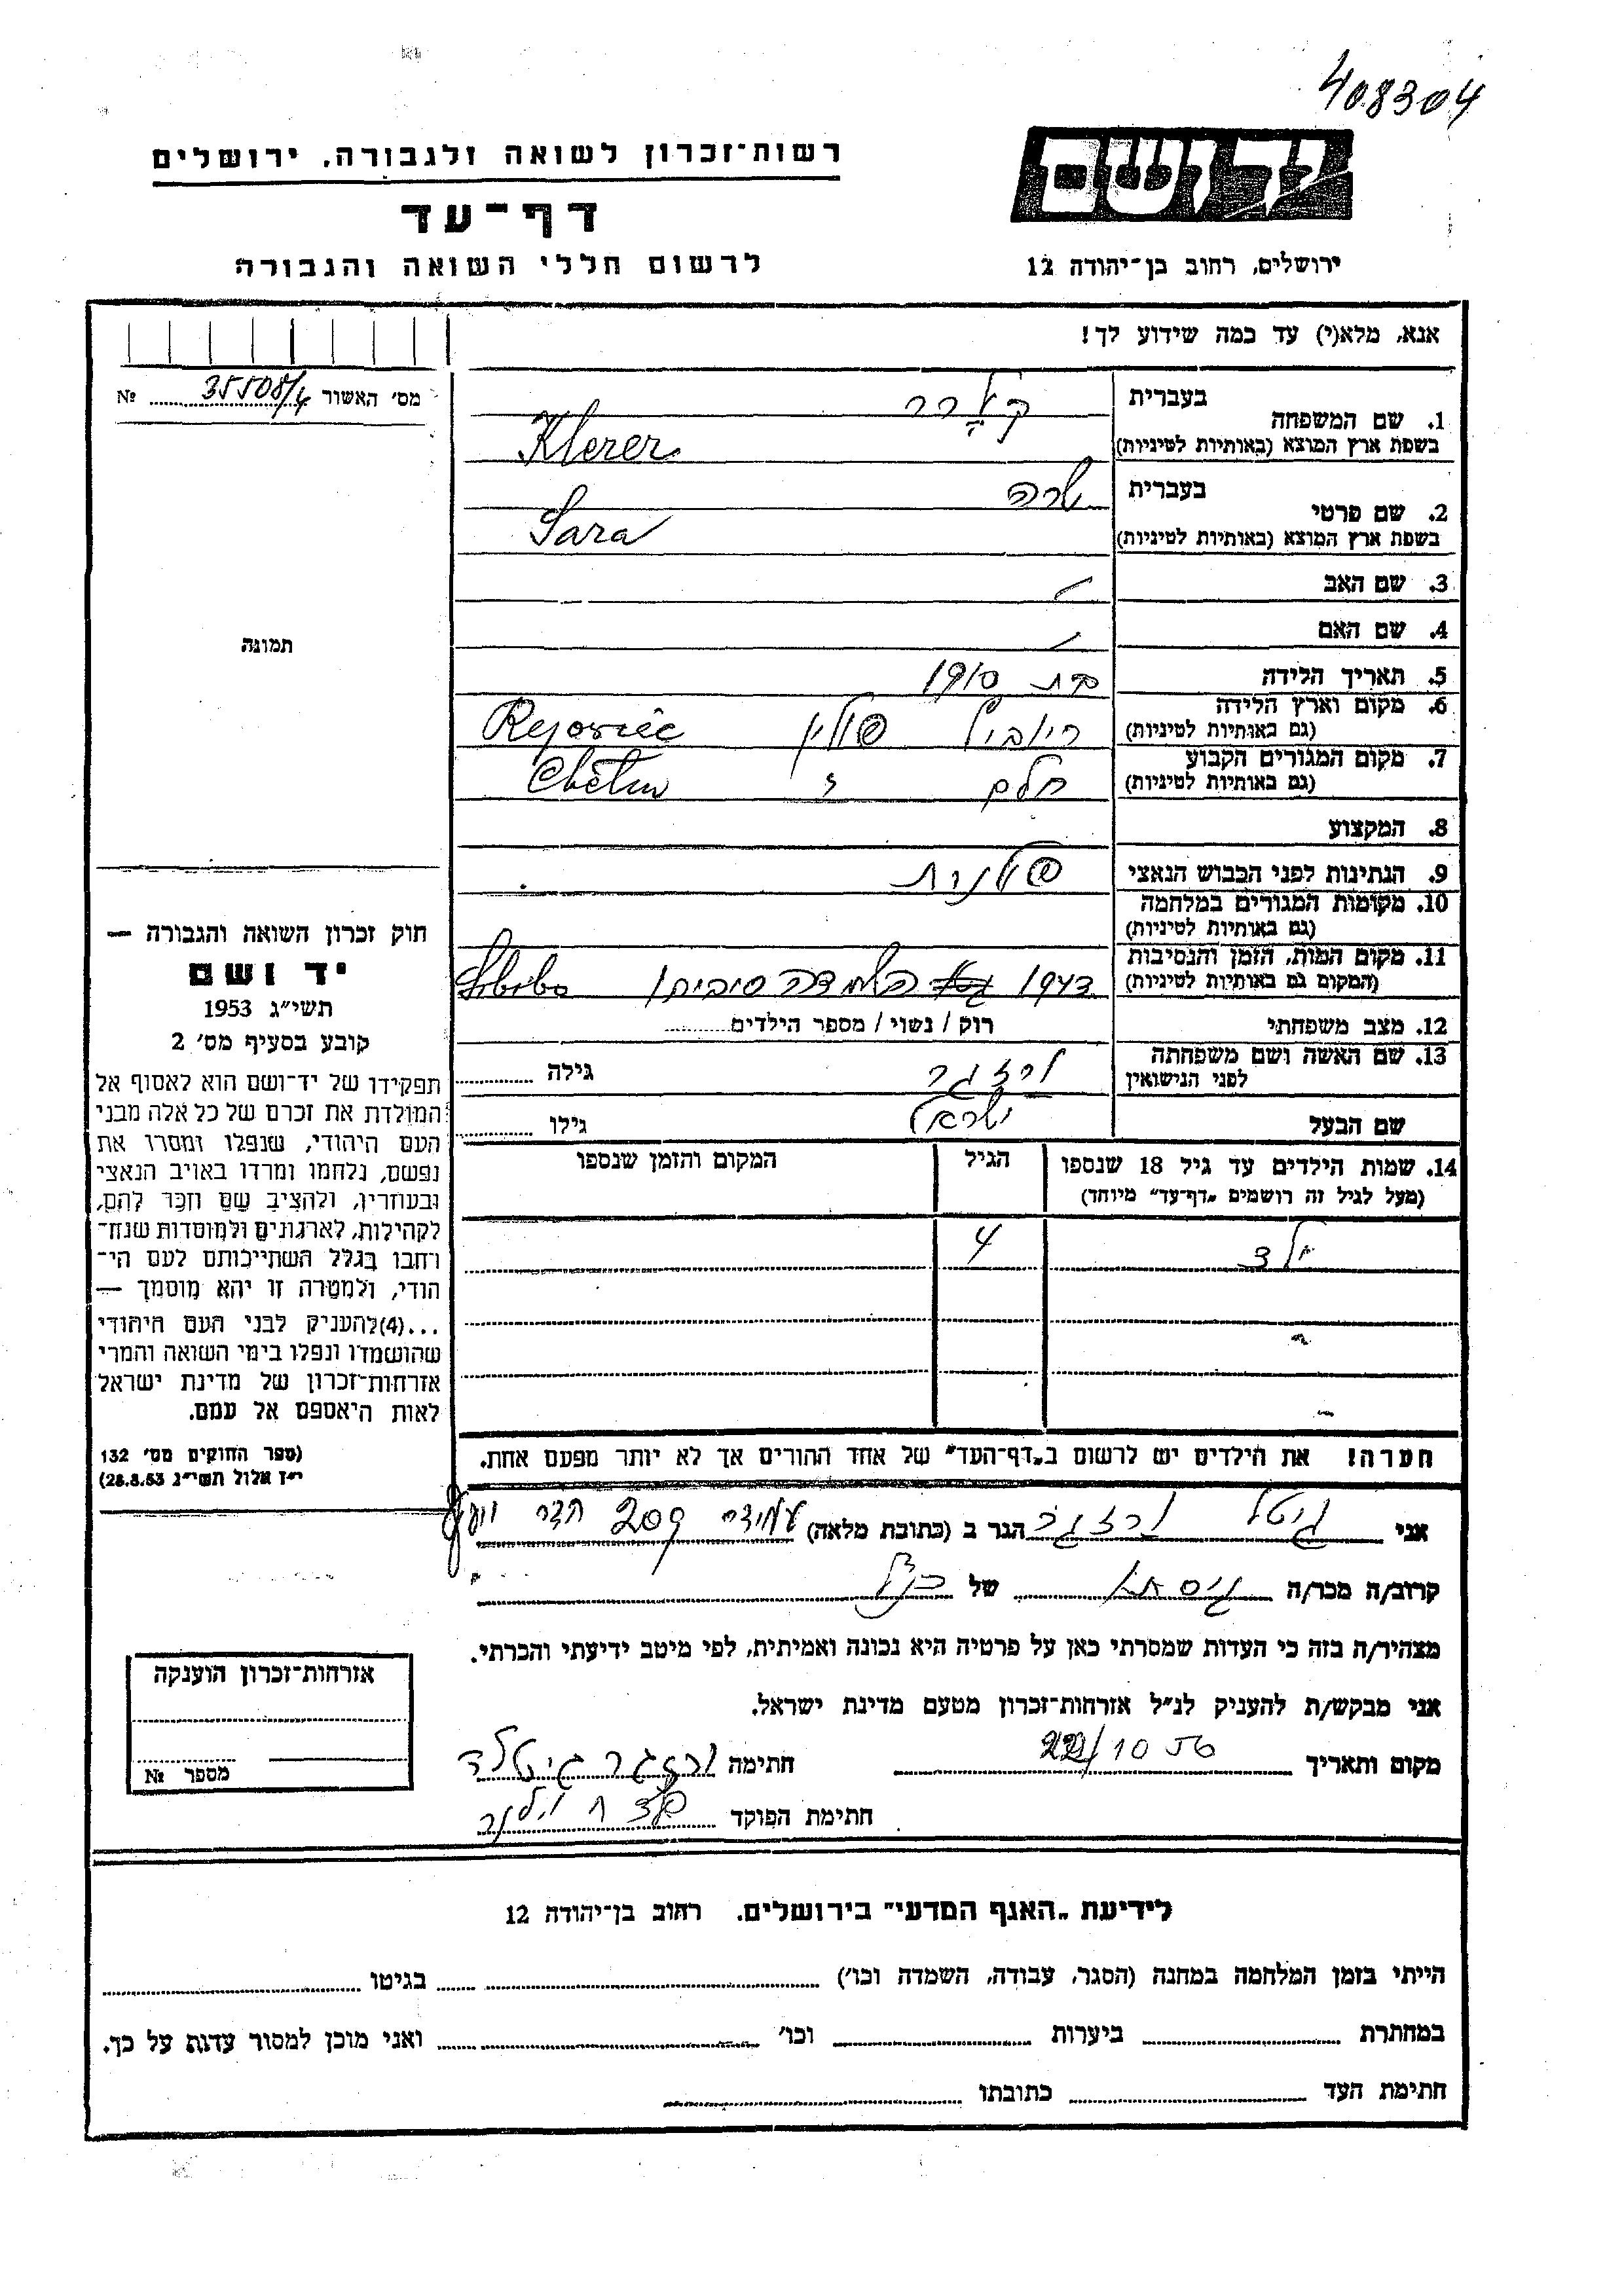 408304
רשות־זכרון לשואה ולגבורה, ירושלים
יד ושם
דף־עד
לרשום חללי השואה והגבורה
ירושלים, רחוב בן־יהודה 12
אנא, מלא(י) עד כמה שידוע לך!
מס׳ האשור 35508/4 №
1. שם המשפחה
בעברית
קלרר
בשפת ארץ המוצא (באותיות לטיניות)
Klerer
2. שם פרטי
בעברית
שרה
בשפת ארץ המוצא (באותיות לטיניות)
Sara
3. שם האב
4. שם האם
תמונה
5. תאריך הלידה
1910
6. מקום וארץ הלידה
(גם באותיות לטיניות)
פולין
7. מקום המגורים הקבוע
(גם באותיות לטיניות)
חלם
8. המקצוע
9. הנתינות לפני הכבוש הנאצי
פולנית
10. מקומות המגורים במלחמה
(גם באותיות לטיניות)
11. מקום המות, הזמן והנסיבות
(המקום גם באותיות לטיניות)
1943
12. מצב משפחתי
רוק / נשוי / מספר הילדים
13. שם האשה ושם משפחתה
לפני הנישואין
גילה
שם הבעל
ישראל
גילו
14. שמות הילדים עד גיל 18 שנספו
(מעל לגיל זה רושמים „דף־עד״ מיוחד)
הגיל
המקום והזמן שנספו
ילד
4
הערה! את הילדים יש לרשום ב„דף־העד״ של אחד ההורים אך לא יותר מפעם אחת.
חוק זכרון השואה והגבורה —
יד ושם
תשי״ג 1953
קובע בסעיף מס׳ 2
תפקידו של יד־ושם הוא לאסוף אל
המולדת את זכרם של כל אלה מבני
העם היהודי, שנפלו ומסרו את
נפשם, נלחמו ומרדו באויב הנאצי
ובעוזריו, ולהציב שם וזכר להם,
לקהילות, לארגונים ולמוסדות שנח־
רחבו בגלל השתייכותם לעם הי־
הודי, ולמטרה זו יהא מוסמך —
...(4)להעניק לבני העם היהודי
שהושמדו ונפלו בימי השואה והמרי
אזרחות־זכרון של מדינת ישראל
לאות היאספם אל עמם.
(ספר החוקים מס׳ 132
י״ז אלול תשי״ג 28.8.53)
אני גיטל הגר ב (כתובת מלאה) 209 חדר
קרוב/ה מכר/ה גיסתי של כנ״ל
מצהיר/ה בזה כי העדות שמסרתי כאן על פרטיה היא נכונה ואמיתית, לפי מיטב ידיעתי והכרתי.
אני מבקש/ת להעניק לנ״ל אזרחות־זכרון מטעם מדינת ישראל.
מקום ותאריך 22/10 56 חתימה
חתימת הפוקד
אזרחות־זכרון הוענקה
מספר №
לידיעת „האגף המדעי״ בירושלים. רחוב בן־יהודה 12
הייתי בזמן המלחמה במחנה (הסגר, עבודה, השמדה וכו׳) בגיטו
במחתרת ביערות וכו׳ ואני מוכן למסור עדות על כך.
חתימת העד כתובתו